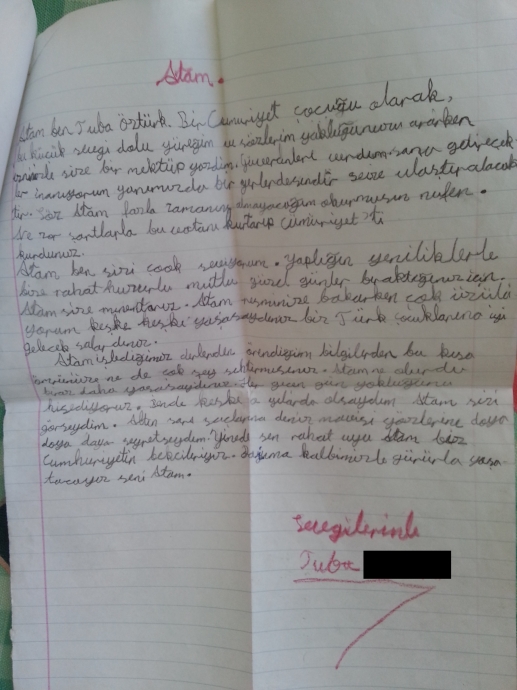 Atam.
Atam ben Tuba Öztürk. Bir Cumuriyet çocuğu olarak,
bu küçük sevgi dolu yüreğim ve sözlerim yokluğunuzu ararken
size bir mektup yazdım. güvercinlerle sana getirecek
ler inanıyorum yanımızda bir yerlerdesindir seize ulaştıralacak
tır. söz Atam fazla zamanını almayacağım okurmusun nufen.
Ne zor şartlarla bu vatanı kurtarıp Cumuriyet'ti
kurdunuz.
Atam ben sizi çook seviyorum. Yaptığın yeniliklerle
bize rahat huzurlu mutlu güzel günler bıraktığınız için.
Atam size minentarız. Atam resminize bakarken çok üzülü
yorum keşke keşke yaşasaydınız biz Türk çocuklarına iyi
gelecek
Atam işlediğimiz derslerden örendiğim bilgilerden bu kısa
ömrünüze ne de çok şey Atam ne olurdu
biraz daha yaşasaydınız. Her geçen gün yokluğunu
hisediyoruz. Bende keşke o yılarda olsaydım Atam sizi
görseydim. Altın sarı saçlarına deniz mavisi gözlerine doya
doya doya seyretseydim. Yinede sen rahat uyu Atam biz
Cumhuriyetin bekcileriyiz. daima kalbimizde gururla yaşa
tacayız seni Atam.
Sevgilerimle
Tuba